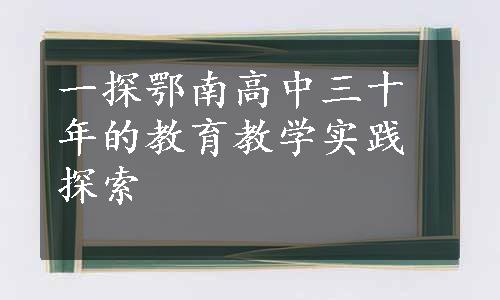 一探鄂南高中三十
年的教育教学实践
探索